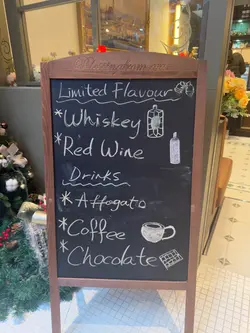 Limited Flavour
*Whiskey
*Red Wine
Drinks
*Affogato
*Coffee
*Chocolate